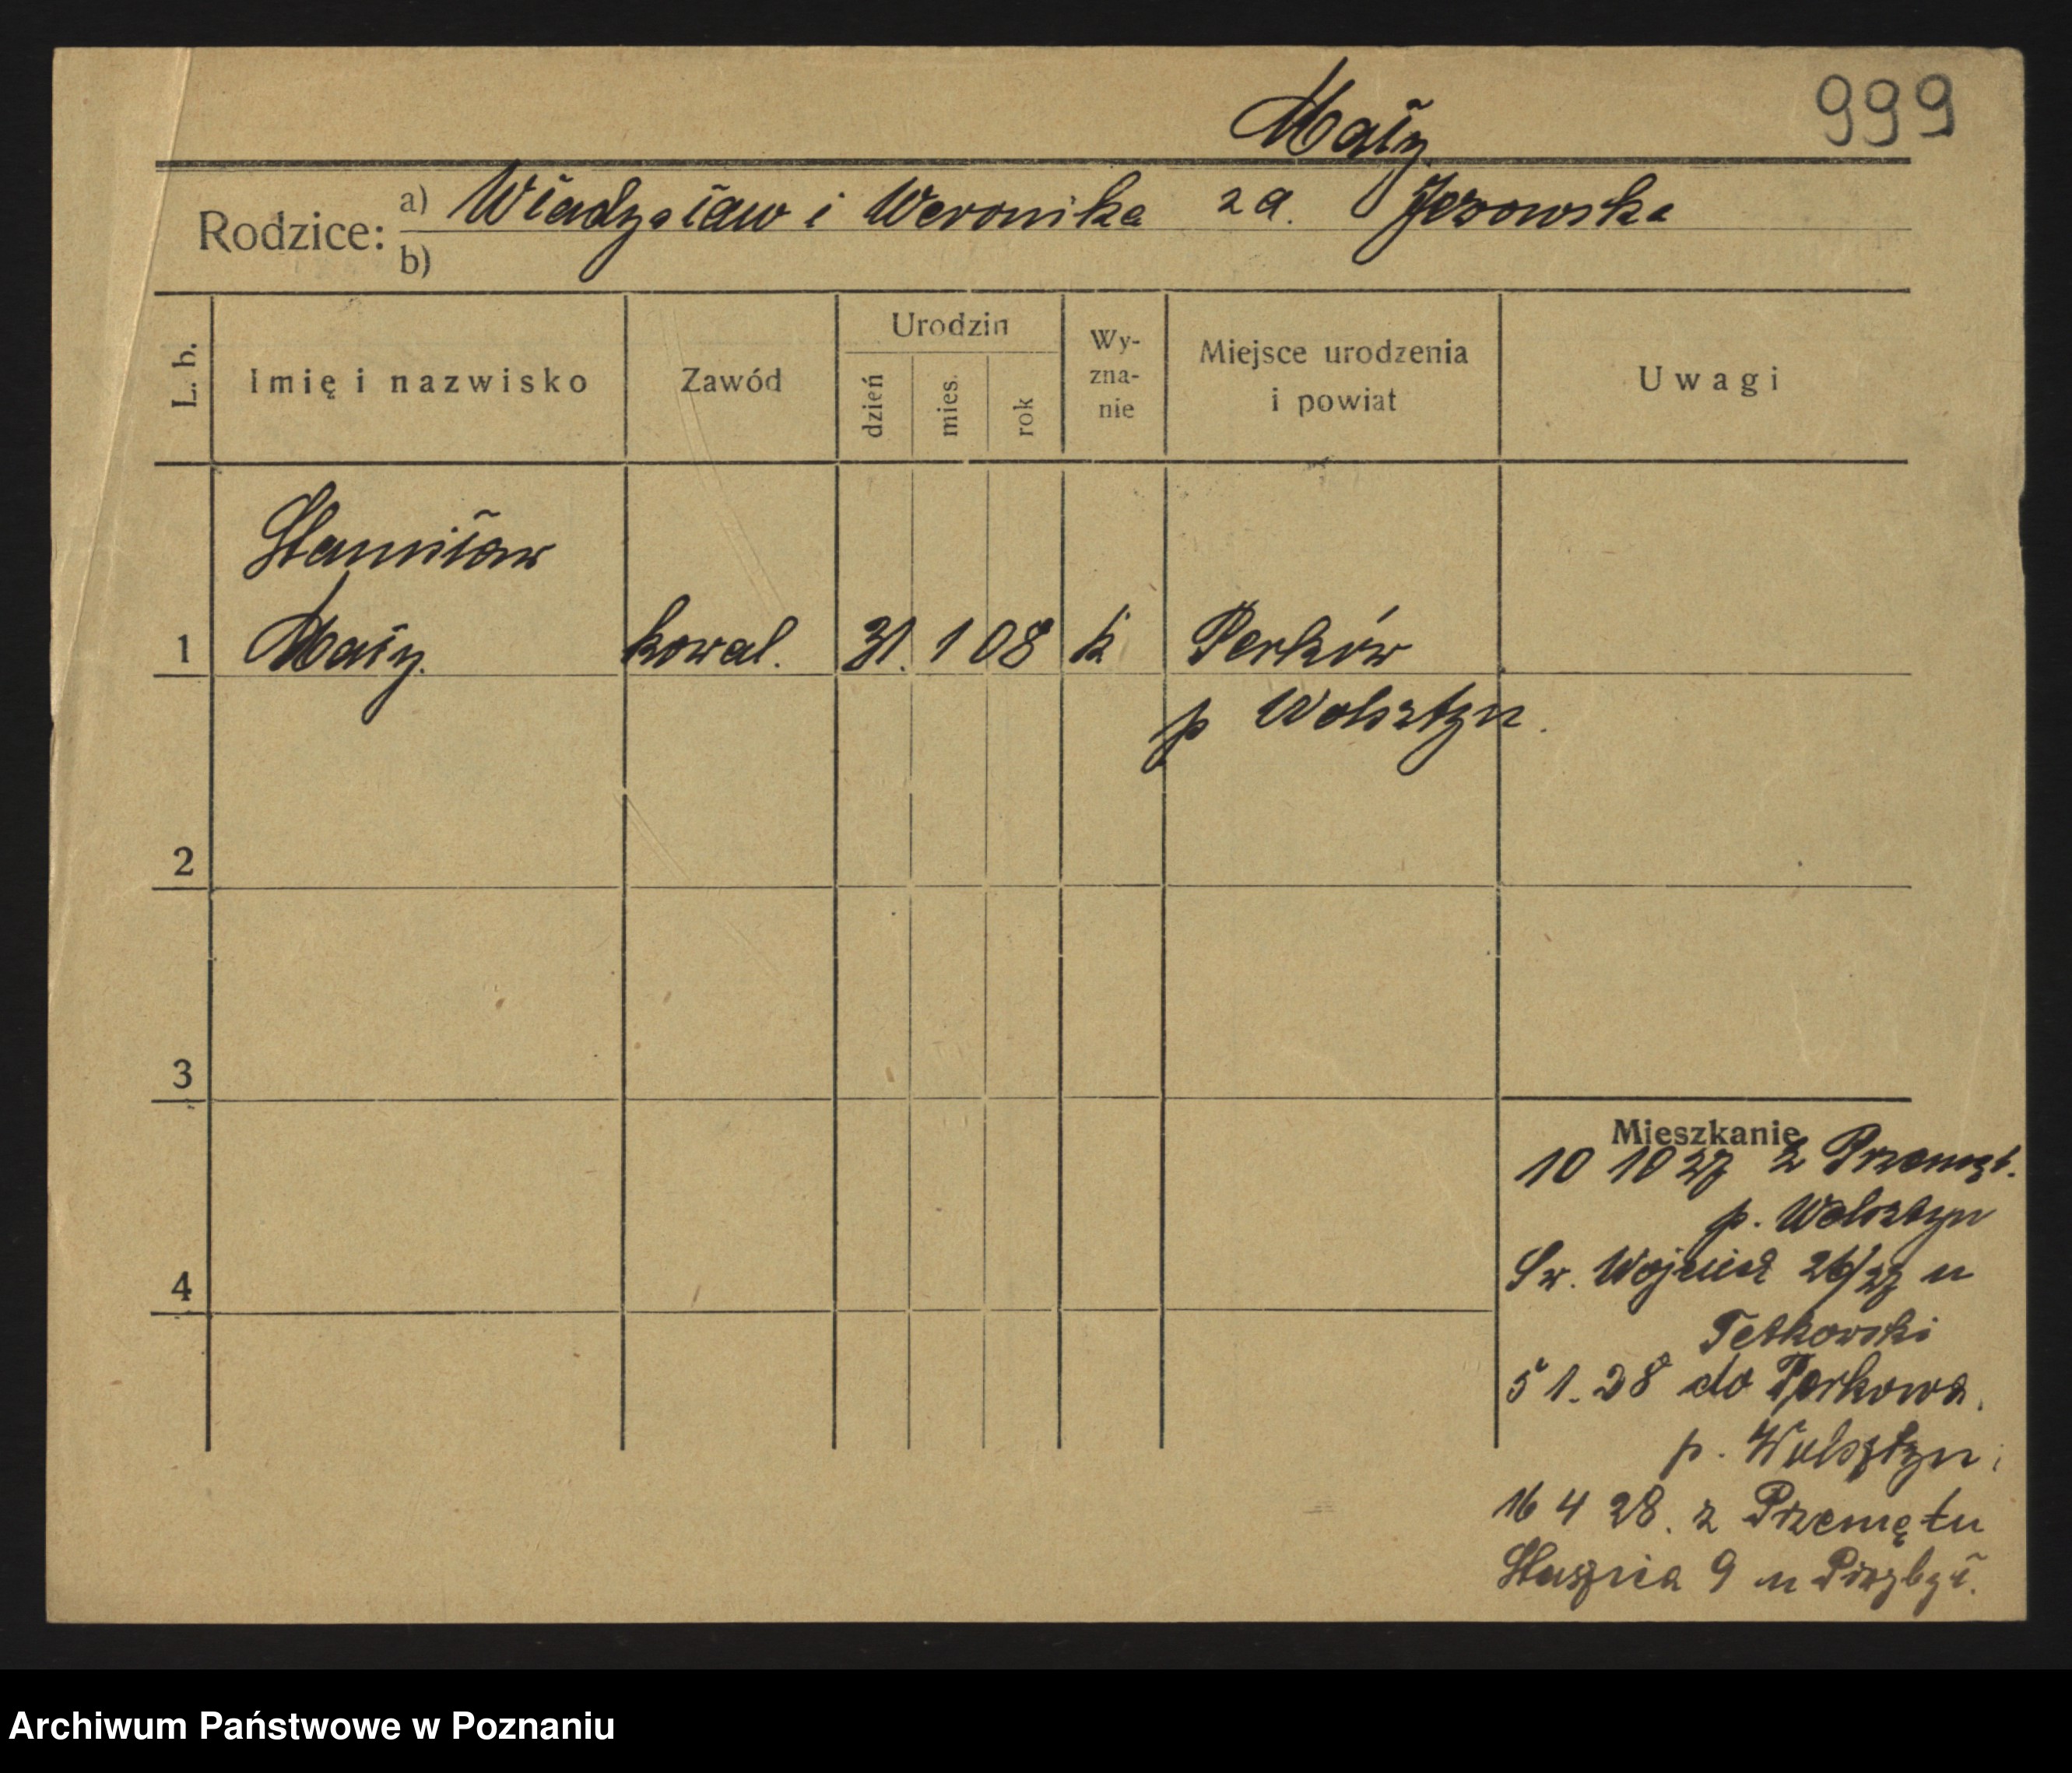 Mały
999
Rodzice:
a) Władysław i Weronika za. Jezowska
b)
L. b.
Imię i nazwisko
Zawód
Urodzin
dzień
mies.
rok
Wy-
zna-
nie
Miejsce urodzenia
i powiat
Uwagi
Stanisław
1 Mały. kowal. 31. 1 08 k Perków
p Wolsztyn.
2
3
4
Mieszkanie
10 10 27 z Przemęt.
p. Wolsztyn
Św. Wojciech 26/27 u
Tetkowski
5 1. 28 do Perkowa.
p. Wolsztyn
16 4 28. z Przemętu
Staszica 9 u Przybył.
Archiwum Państwowe w Poznaniu